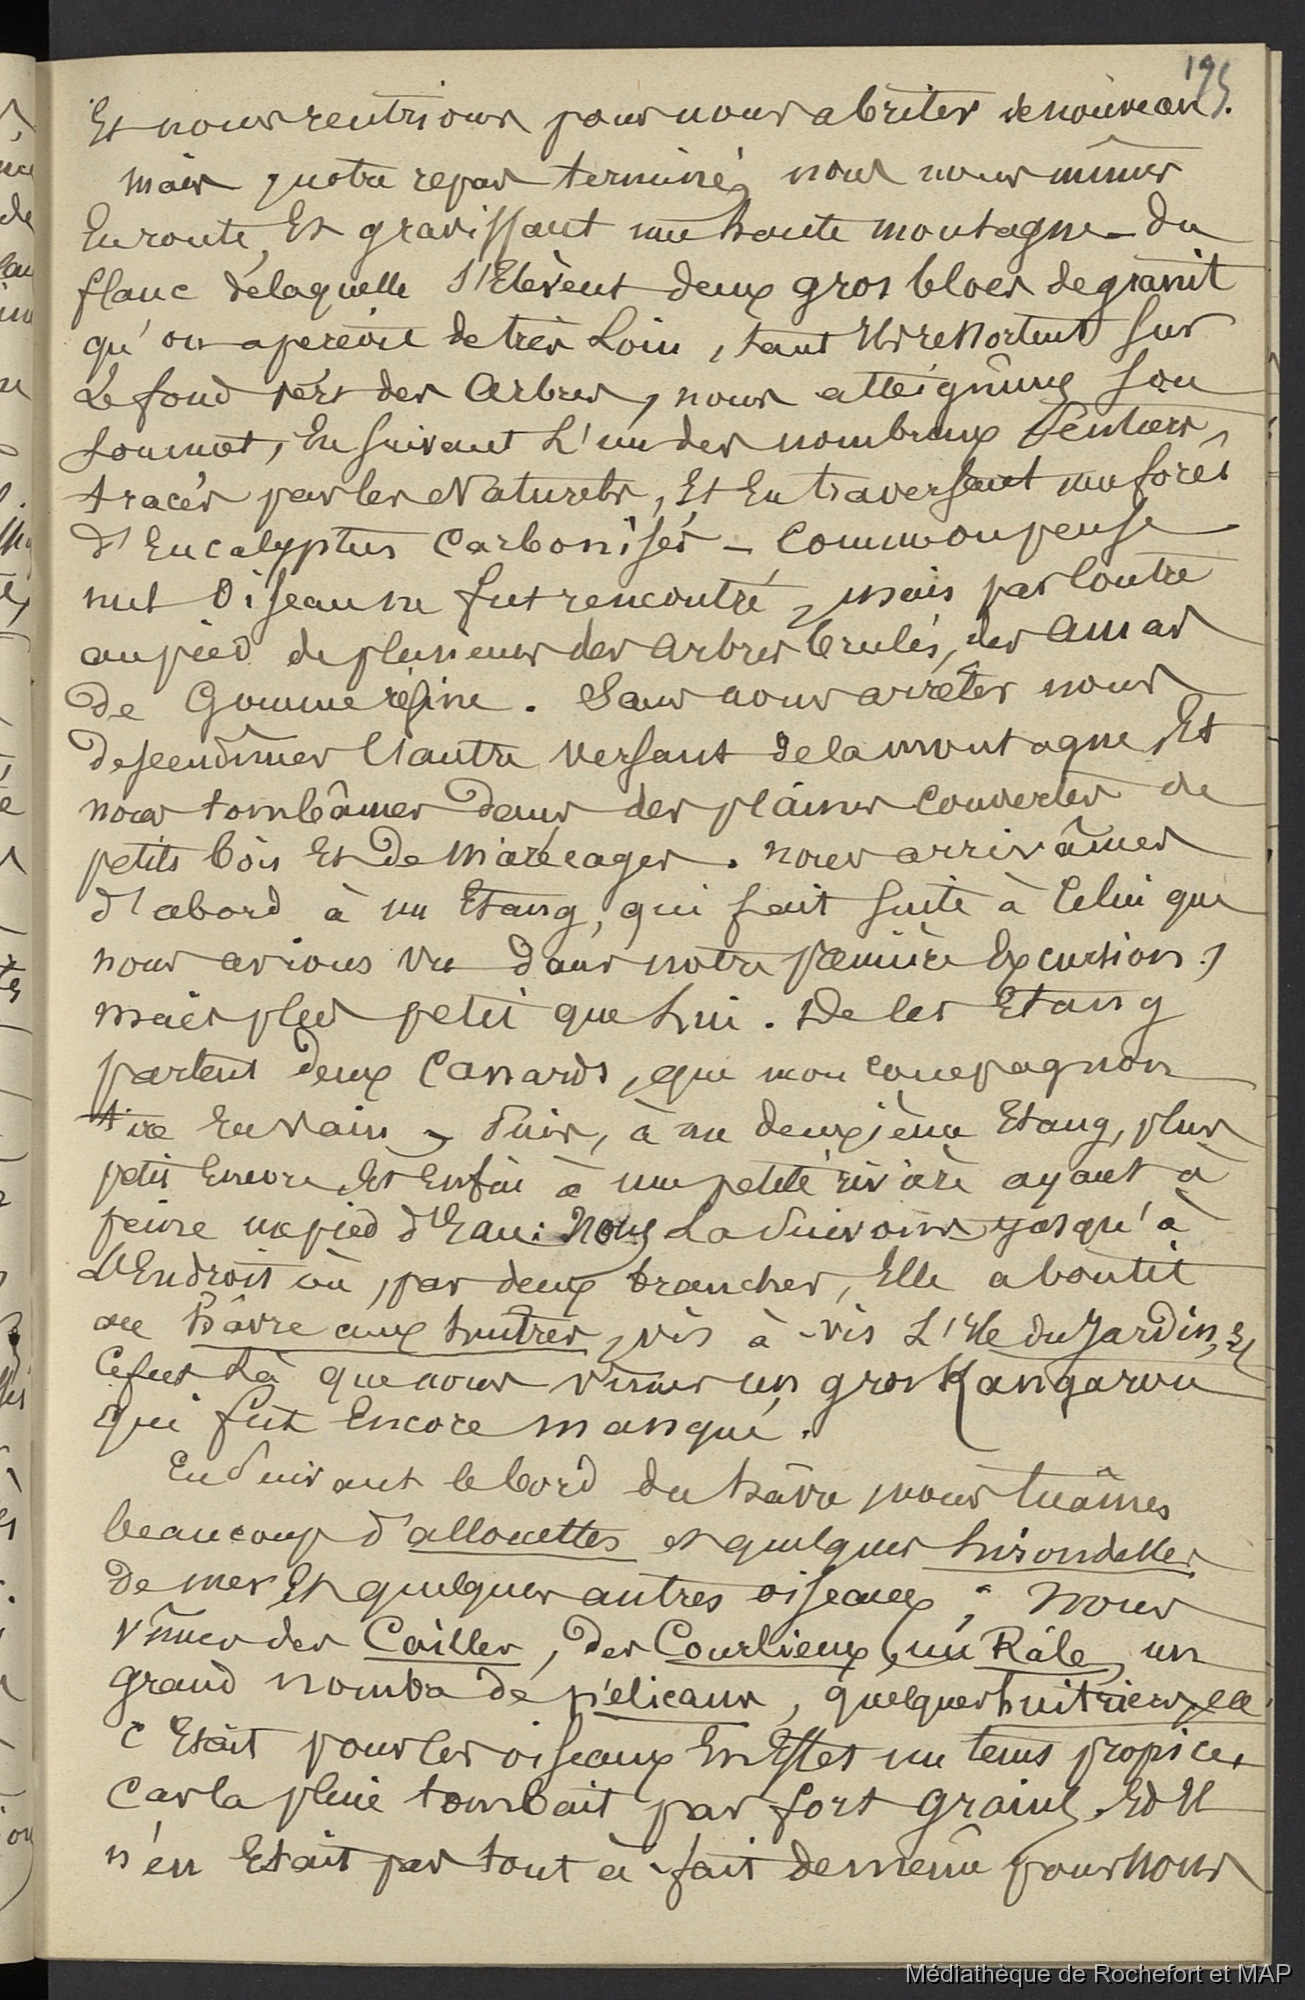 195
Et nous rentrions pour nous abriter de nouveau.
mais, notre repas terminé, nous nous mîmes
En route, Et gravissant une haute montagne du
flanc de laquelle s'Elèvent deux gros blocs de granit
qu'on aperçoit de très Loin, tant Ils ressortent sur
Le fond vert des Arbres, nous atteignîmes son
sommet, En suivant L'un des nombreux sentiers
tracés par les Naturels, Et En traversant une forêt
d'Eucalyptus Carbonisés - Comme on pense
nul Oiseau ne fut rencontré, mais par contre
au pied de plusieurs des arbres brulés, des amas
de Gomme résine. Sans nous arrêter nous
descendîmes L'autre versant de la montagne, Et
nous tombâmes dans des plaines Couvertes de
petits bois Et de Marécages. nous arrivâmes
d'abord à un Etang, qui fait suite à Celui que
nous avions vu dans notre première Excursion,
mais plus petit que Lui. De cet Etang
partent deux Canards, que mon compagnon
tire En vain, Puis, à un deuxième Etang, plus
petit Encore Et Enfin à une petite rivière ayant à
peine un pied d'Eau: Nous La suivons jusqu'à
L'Endroit où, par deux branches, Elle aboutit
au Hâvre aux huitres, vis à-vis L'Ile du Jardin, Et
Ce fut Là que nous vîmes un gros Kangarou
qui fut Encore manqué.
En suivant le bord du hâvre, nous tuâmes
beaucoup d'allouettes et quelques hirondelles
de mer Et quelques autres oiseaux; Nous
vîmes des Cailles, des Courlieux, un Râle, un
grand nombre de pélicans, quelques huitriers, &&
C'Etait pour les oiseaux En Effet un tems propice,
Car la pluie tombait par fort grains, Et Il
n'en Etait pas tout à-fait de même pour nous
Médiathèque de Rochefort et MAP